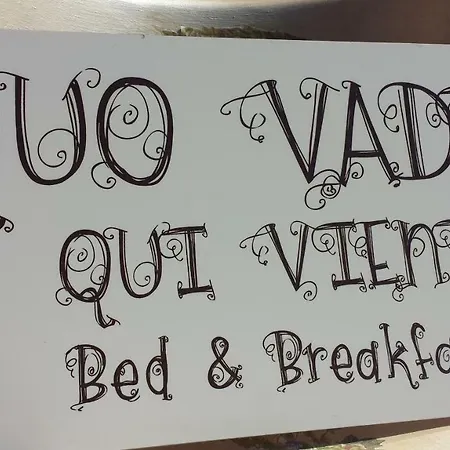 UO VAD
QUI VIEN
Bed & Breakfa